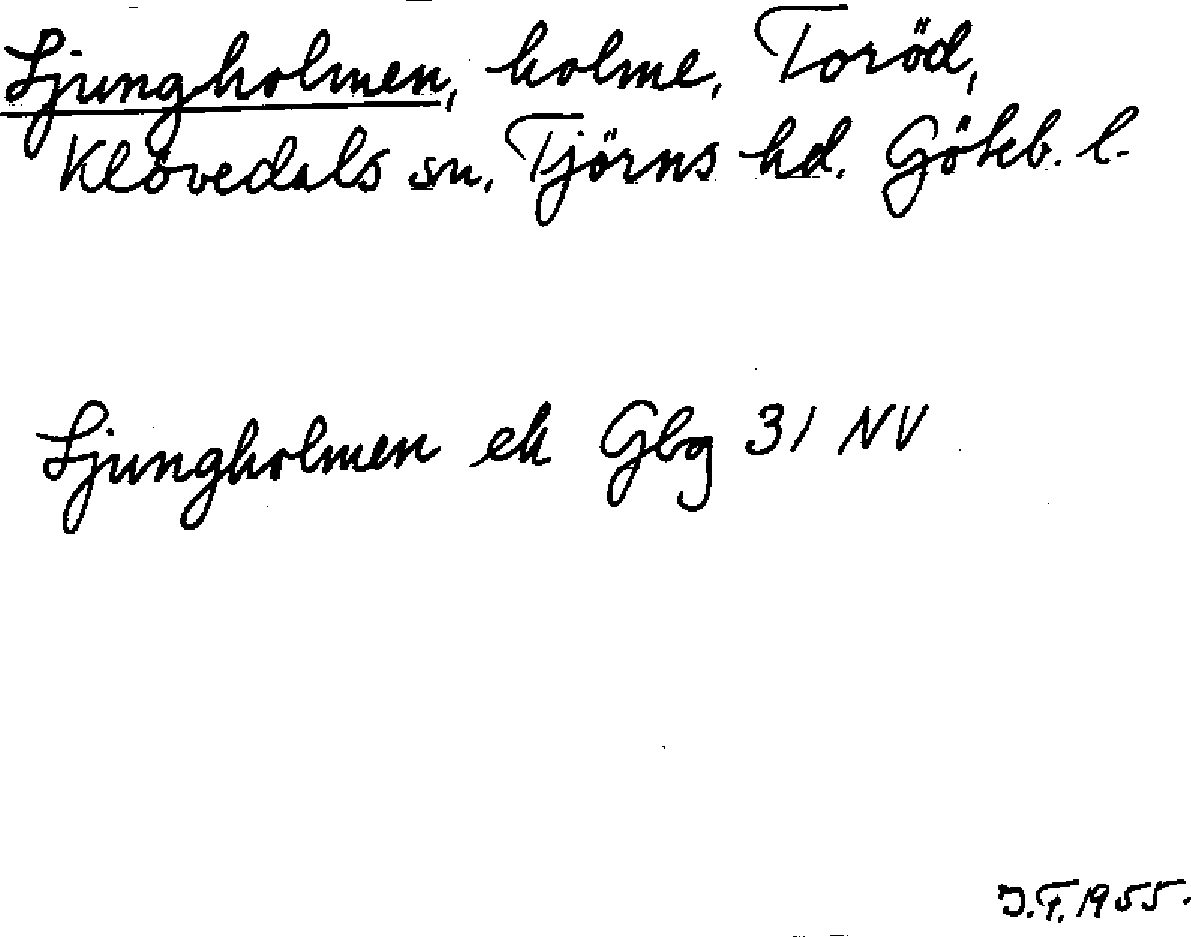 Ljungholmen, holme, Toröd,
Klövedals sn. Tjörns hd. Göteb. l.
Ljungholmen ek Gbg 31 NV
J.T. 1955.